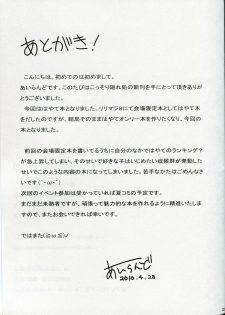 あとがき!
こんにちは、初めての方は初めまして。
あいらんどです。このたびはこっそり隠れ処の新刊を手にとって頂きありが
とうございました。
今回ははやて本となりました。リリマジ8にて会場限定本としてはやて本
をだしたのですが、結局そのままはやてオンリー本を作りたくなり、今回の
本となりました。
前回の会場限定本を書いてるうちに自分のなかではやてのランキング?
が急上昇してしまい、そのせいで好きな子はいじめたい症候群が発動して
しまいこのような内容の本になってしまいました。苦手なかたはごめんなさ
いです(´・ω・`)
次回のイベント参加は受かっていれば夏コミの予定です。
まだまだ未熟者ですが、頑張って魅力的な本を作れるように精進いたしま
すので、またお会いできれば幸いです。
ではまた(≧ω≦)ノ
あいらんど
2010.4.28